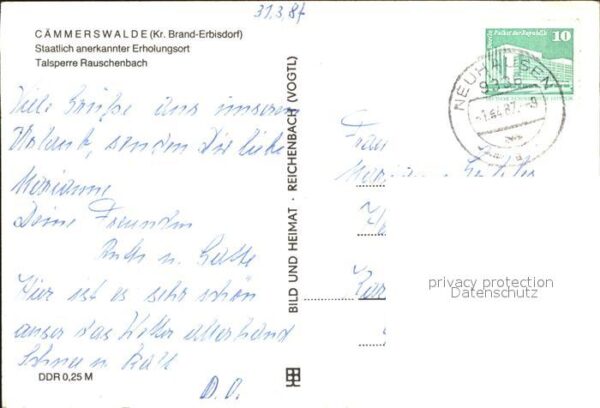 31.3.87
CÄMMERSWALDE (Kr. Brand-Erbisdorf)
Staatlich anerkannter Erholungsort
Talsperre Rauschenbach
Viele Grüße aus unserem
Urlaub, senden Dir liebe
Marianne
Deine Freundin
Ruth u.
Hier ist es sehr schön
außer das Wetter allerhand
Schnee u. kalt
DDR 0,25 M
BILD UND HEIMAT · REICHENBACH (VOGTL)
Palast der Republik
10
NEUHAUSEN
9336
Frau
Marianne
privacy protection
Datenschutz